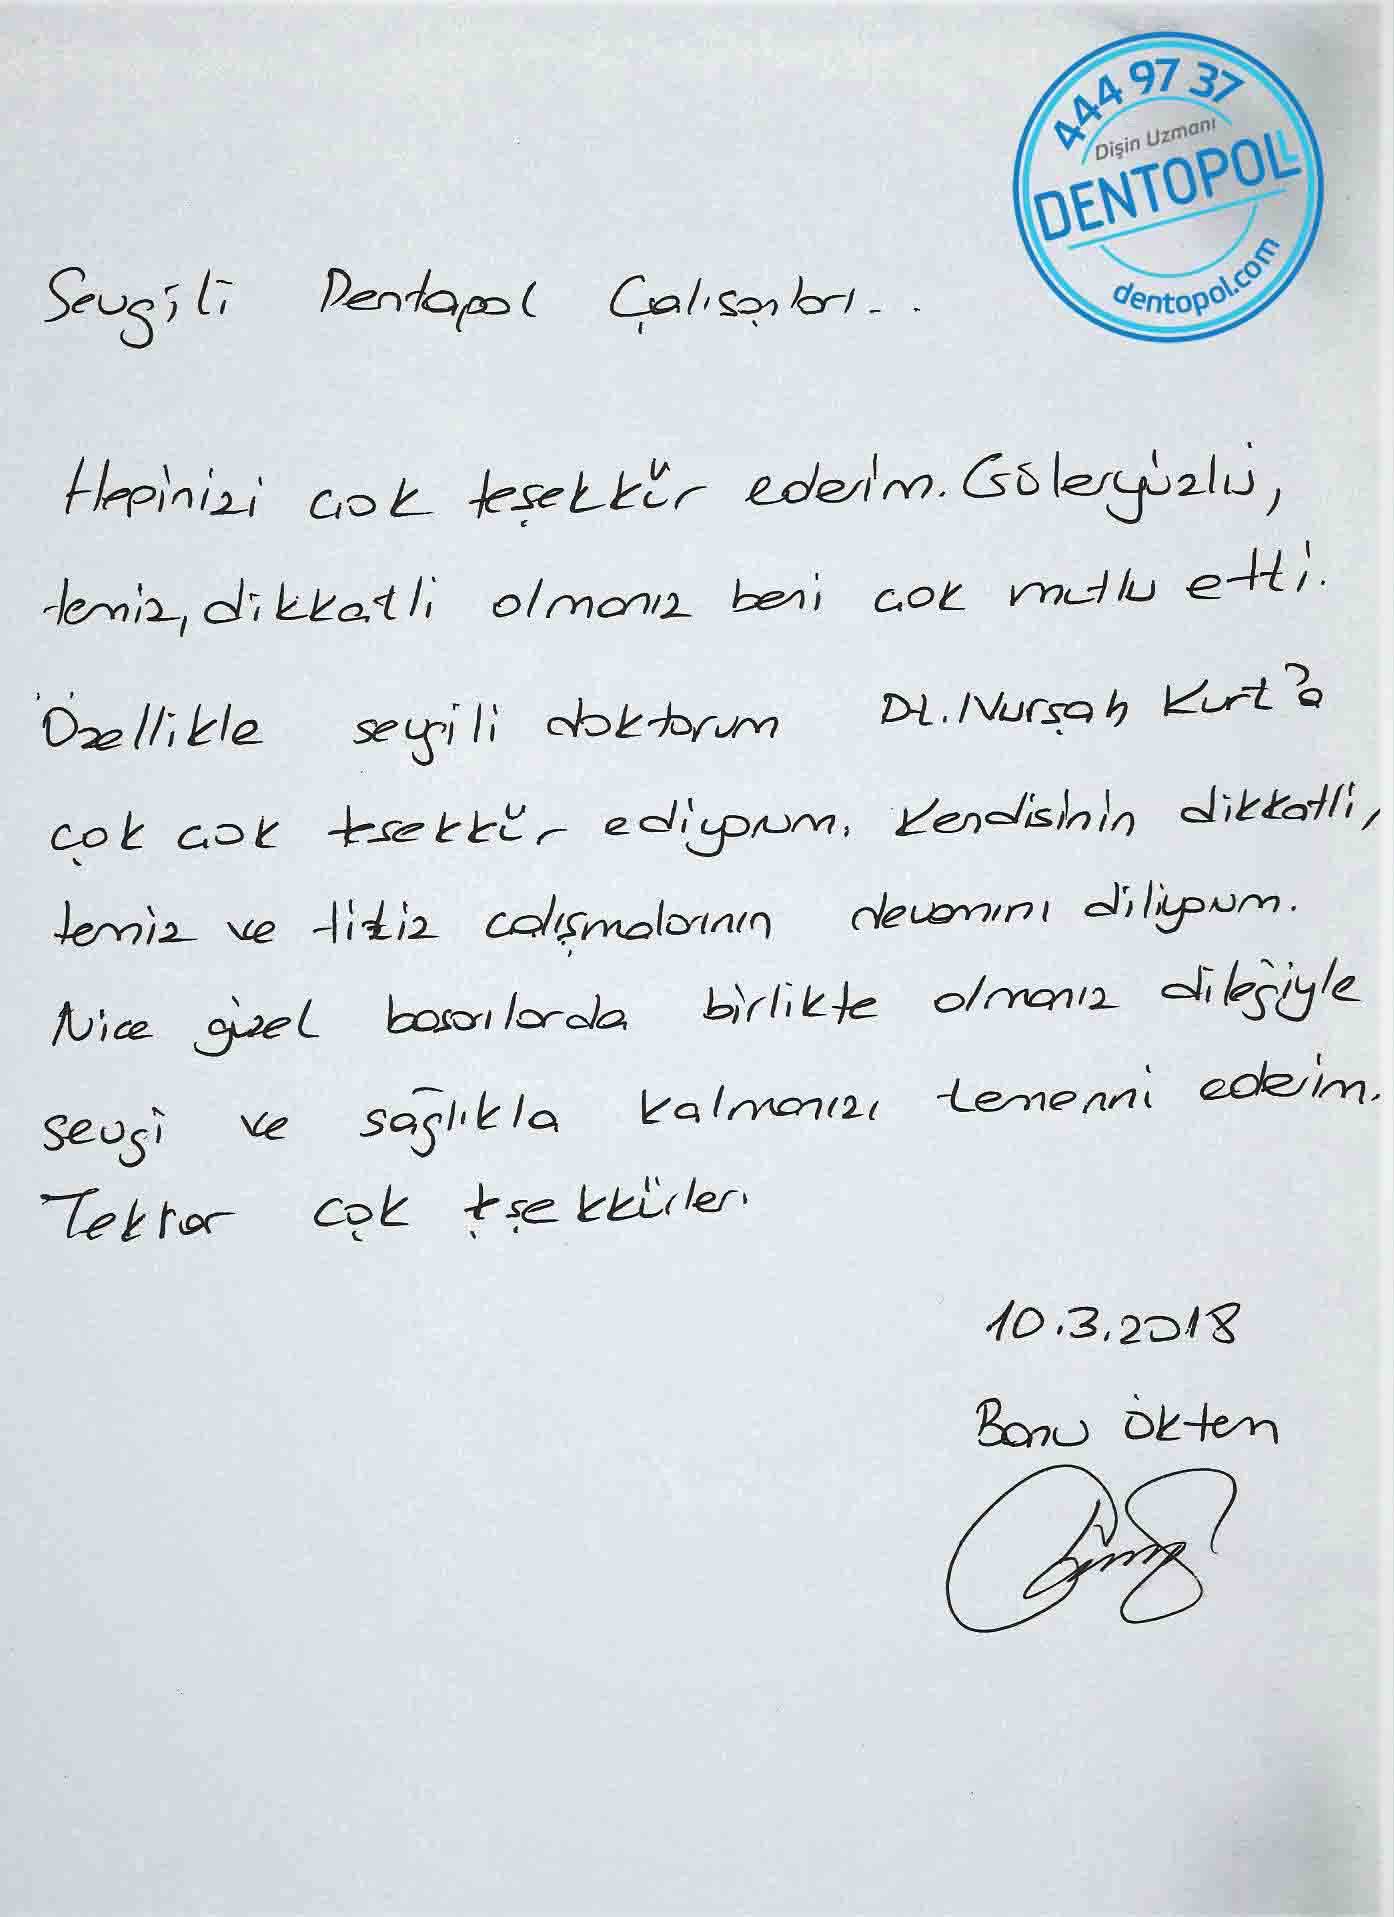 444 97 37
Dişin Uzmanı
DENTOPOL
dentopol.com
Sevgili Dentapol Çalışanları...
Hepinizi çok teşekkür ederim. Güleryüzlü,
temiz, dikkatli olmanız beni çok mutlu etti.
Özellikle sevgili doktorum Dt. Nurşah Kurt'a
çok çok teşekkür ediyorum. Kendisinin dikkatli,
temiz ve titiz çalışmalarının devamını diliyorum.
Nice güzel başarılarda birlikte olmanız dileğiyle
sevgi ve sağlıkla kalmanızı temenni ederim.
Tekrar çok teşekkürler.
10.3.2018
Banu Ökten